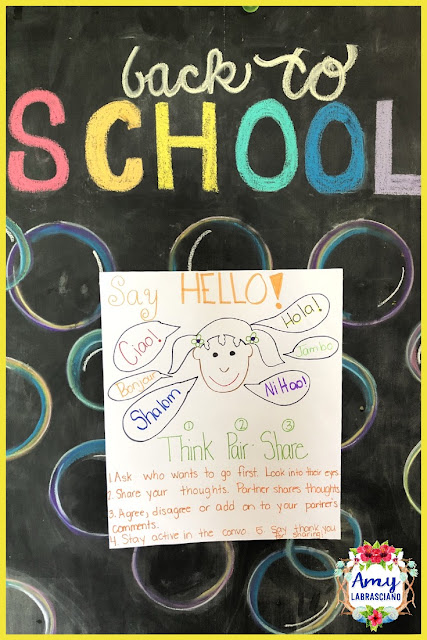 back to
SCHOOL
Say HELLO!
Ciao!
Hola!
Bonjour
Jambo
Shalom
Ni Hao!
① ② ③
Think Pair Share
1. Ask who wants to go first. Look into their eyes.
2. Share your thoughts. Partner shares thoughts
3. Agree, disagree or add on to your partner's
comments.
4. Stay active in the convo. 5. Say thank you
for sharing!
Amy
LABRASCIANO